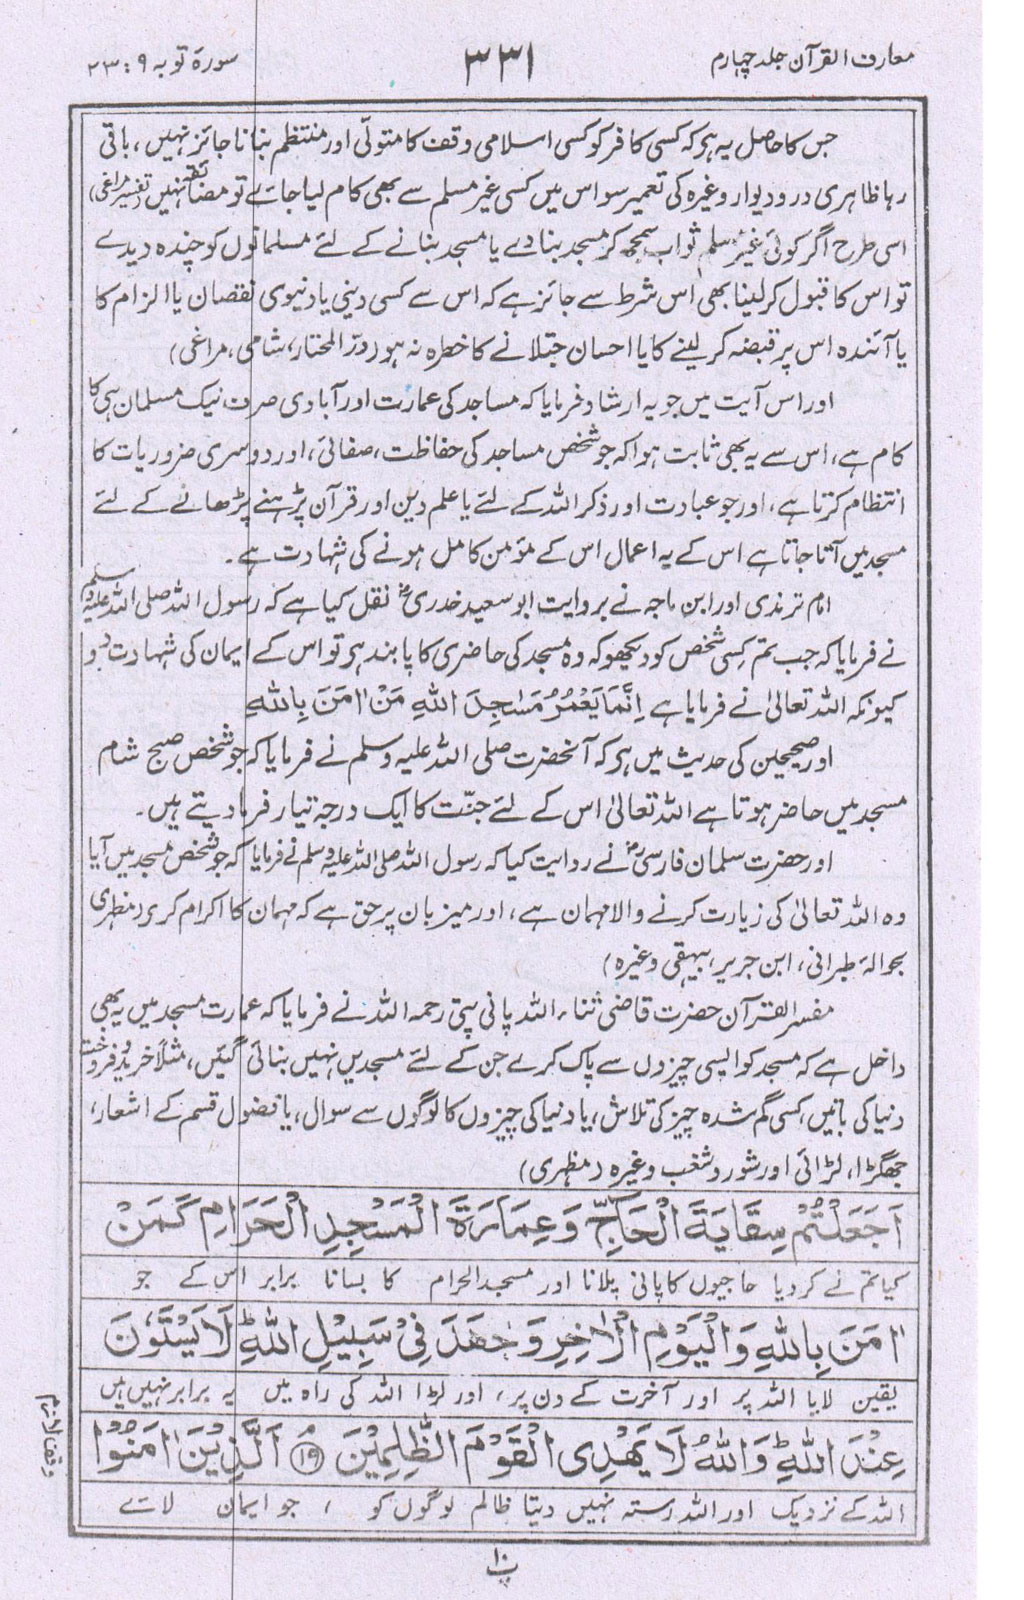 معارف القرآن جلد چہارم
۳۳۱
سورۃ توبہ ۹ : ۲۳
جس کا حاصل یہ ہر کہ کسی کافر کو کسی اسلامی وقف کا متولّی اور منتظم بنانا جائز نہیں، باقی
رہا ظاہری در و دیوار وغیرہ کی تعمیر سو اس میں کسی غیر مسلم سے بھی کام لیا جائے تو مضائقہ نہیں (تفسیر مراغی)
اسی طرح اگر کوئی غیر مسلم ثواب سمجھ کر مسجد بنا دے یا مسجد بنانے کے لئے مسلمانوں کو چندہ دیدے
تو اس کا قبول کر لینا بھی اس شرط سے جائز ہے کہ اس سے کسی دینی یا دنیوی نقصان یا الزام کا
یا آئندہ اس پر قبضہ کر لینے کا یا احسان جتلانے کا خطرہ نہ ہو (در المختار، شامی، مراغی)
اور اس آیت میں جو یہ ارشاد فرمایا کہ مساجد کی عمارت اور آبادی صرف نیک مسلمان ہی کا
کام ہے، اس سے یہ بھی ثابت ہوا کہ جو شخص مساجد کی حفاظت، صفائی، اور دوسری ضروریات کا
انتظام کرتا ہے، اور جو عبادت اور ذکر اللہ کے لئے یا علم دین اور قرآن پڑہنے پڑھانے کے لئے
مسجد میں آتا جاتا ہے اس کے یہ اعمال اس کے مؤمن کامل ہونے کی شہادت ہے۔
امام ترمذی اور ابن ماجہ نے بروایت ابو سعید خدریؓ نقل کیا ہے کہ رسول اللہ صلی اللہ علیہ وسلم
نے فرمایا کہ جب تم کسی شخص کو دیکھو کہ وہ مسجد کی حاضری کا پابند ہر تو اس کے ایمان کی شہادت دو
کیونکہ اللہ تعالیٰ نے فرمایا ہے اِنَّمَا يَعْمُرُ مَسٰجِدَ اللهِ مَنْ اٰمَنَ بِاللهِ
اور صحیحین کی حدیث میں ہر کہ آنحضرت صلی اللہ علیہ وسلم نے فرمایا کہ جو شخص صبح شام
مسجد میں حاضر ہوتا ہے اللہ تعالیٰ اس کے لئے جنّت کا ایک درجہ تیار فرما دیتے ہیں۔
اور حضرت سلمان فارسیؓ نے روایت کیا کہ رسول اللہ صلی اللہ علیہ وسلم نے فرمایا کہ جو شخص مسجد میں آیا
وہ اللہ تعالیٰ کی زیارت کرنے والا مہمان ہے، اور میزبان پر حق ہے کہ مہمان کا اکرام کری (مظہری
بحوالہ طبرانی، ابن جریر، بیہقی وغیرہ)
مفسر القرآن حضرت قاضی ثناء اللہ پانی پتی رحمہ اللہ نے فرمایا کہ عمارت مسجد میں یہ بھی
داخل ہے کہ مسجد کو ایسی چیزوں سے پاک کرے جن کے لئے مسجدیں نہیں بنائی گئیں، مثلاً خرید و فروخت
دنیا کی باتیں، کسی گم شدہ چیز کی تلاش، یا دنیا کی چیزوں کا لوگوں سے سوال، یا فضول قسم کے اشعار،
جھگڑا، لڑائی اور شور و شغب وغیرہ (مظہری)
اَجَعَلْتُمْ سِقَايَةَ الْحَآجِّ وَعِمَارَةَ الْمَسْجِدِ الْحَرَامِ كَمَنْ
کیا تم نے کر دیا حاجیوں کا پانی پلانا اور مسجد الحرام کا بسانا برابر اس کے جو
اٰمَنَ بِاللهِ وَالْيَوْمِ الْاٰخِرِ وَجٰهَدَ فِيْ سَبِيْلِ اللهِ ؕ لَا يَسْتَوٗنَ
یقین لایا اللہ پر اور آخرت کے دن پر، اور لڑا اللہ کی راہ میں یہ برابر نہیں ہیں
عِنْدَ اللهِ ؕ وَاللهُ لَا يَهْدِى الْقَوْمَ الظّٰلِمِيْنَ ۘ ﴿۱۹﴾ اَلَّذِيْنَ اٰمَنُوْا
اللہ کے نزدیک اور اللہ رستہ نہیں دیتا ظالم لوگوں کو ، جو ایمان لائے
وقف لازم
پ۱۰